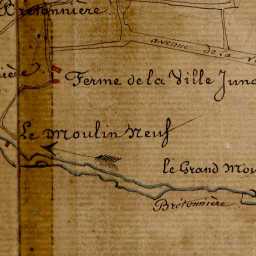 Bretonnière
avenue de la
Ferme de la Ville
Le Moulin Neuf
le Grand
Bretonnière